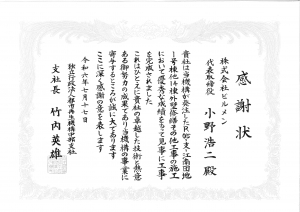 感謝状
株式会社エルメン
代表取締役 小野浩二殿
貴社は当機構が発注したＲ６支・江南団地
１号棟他１４棟外壁修繕その他工事の施工
において優秀な成績をもって見事に工事
を完成されました
これはひとえに貴社の卓越した技術と熱意
ある御努力の成果であり当機構の事業に
寄与するところが誠に大であります
ここに深く感謝の意を表します
令和六年七月十七日
独立行政法人都市再生機構中部支社
支社長 竹内英雄